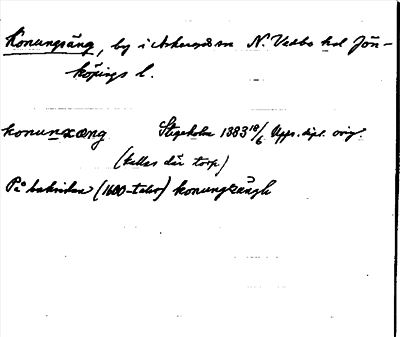 Konungsäng, by i Askeryds sn N. Vedbo hd Jön-
köpings l.
konunxæng Stegeholm 1383 10/6 Upps. dipl. orig.
(kallas där torp)
På baksidan (1600-talet) konungxängh